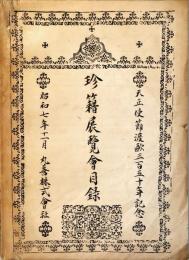 天正使節渡歐三百五十年記念
珍籍展覽會目錄
昭和七年十一月　丸善株式會社